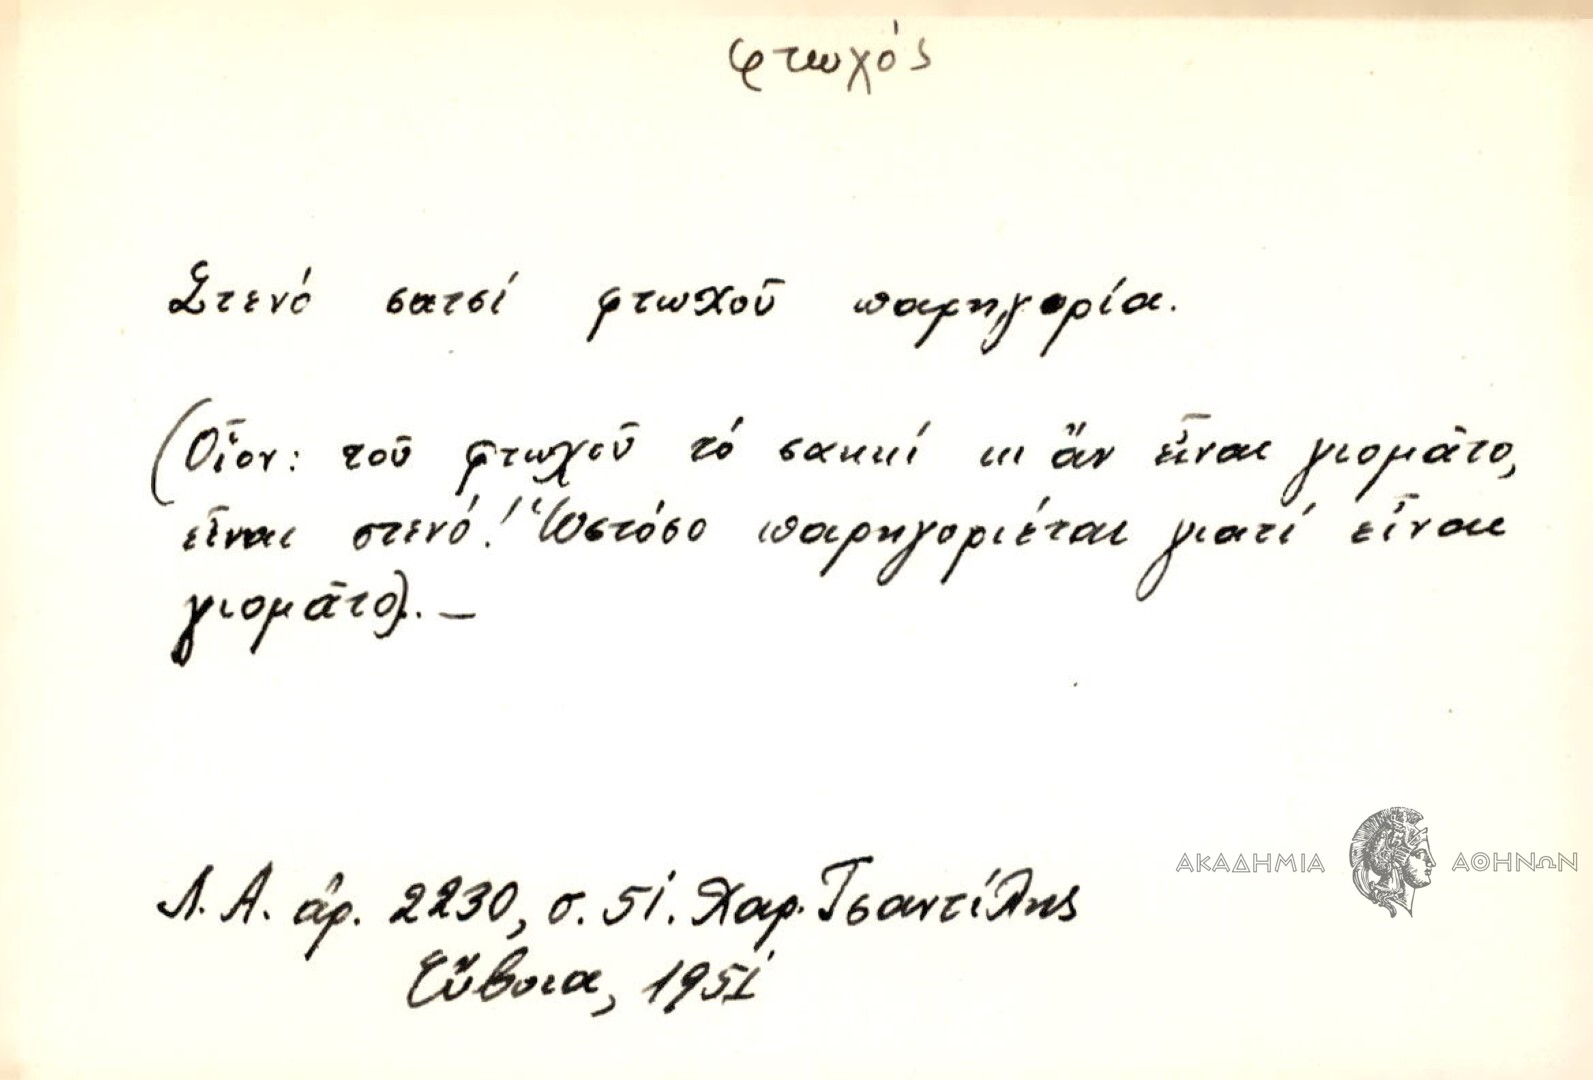 φτωχός
Στενό σατσί φτωχοῦ παρηγορία.
(Οἷον: τοῦ φτωχοῦ τό σακκί κι ἄν εἶναι γιομᾶτο,
εἶναι στενό! Ὡστόσο παρηγοριέται γιατί εἶναι
γιομᾶτο). —
Λ. Α. ἀρ. 2230, σ. 51. Χαρ. Τσαντίλης
Εὔβοια, 1951
ΑΚΑΔΗΜΙΑ ΑΘΗΝΩΝ